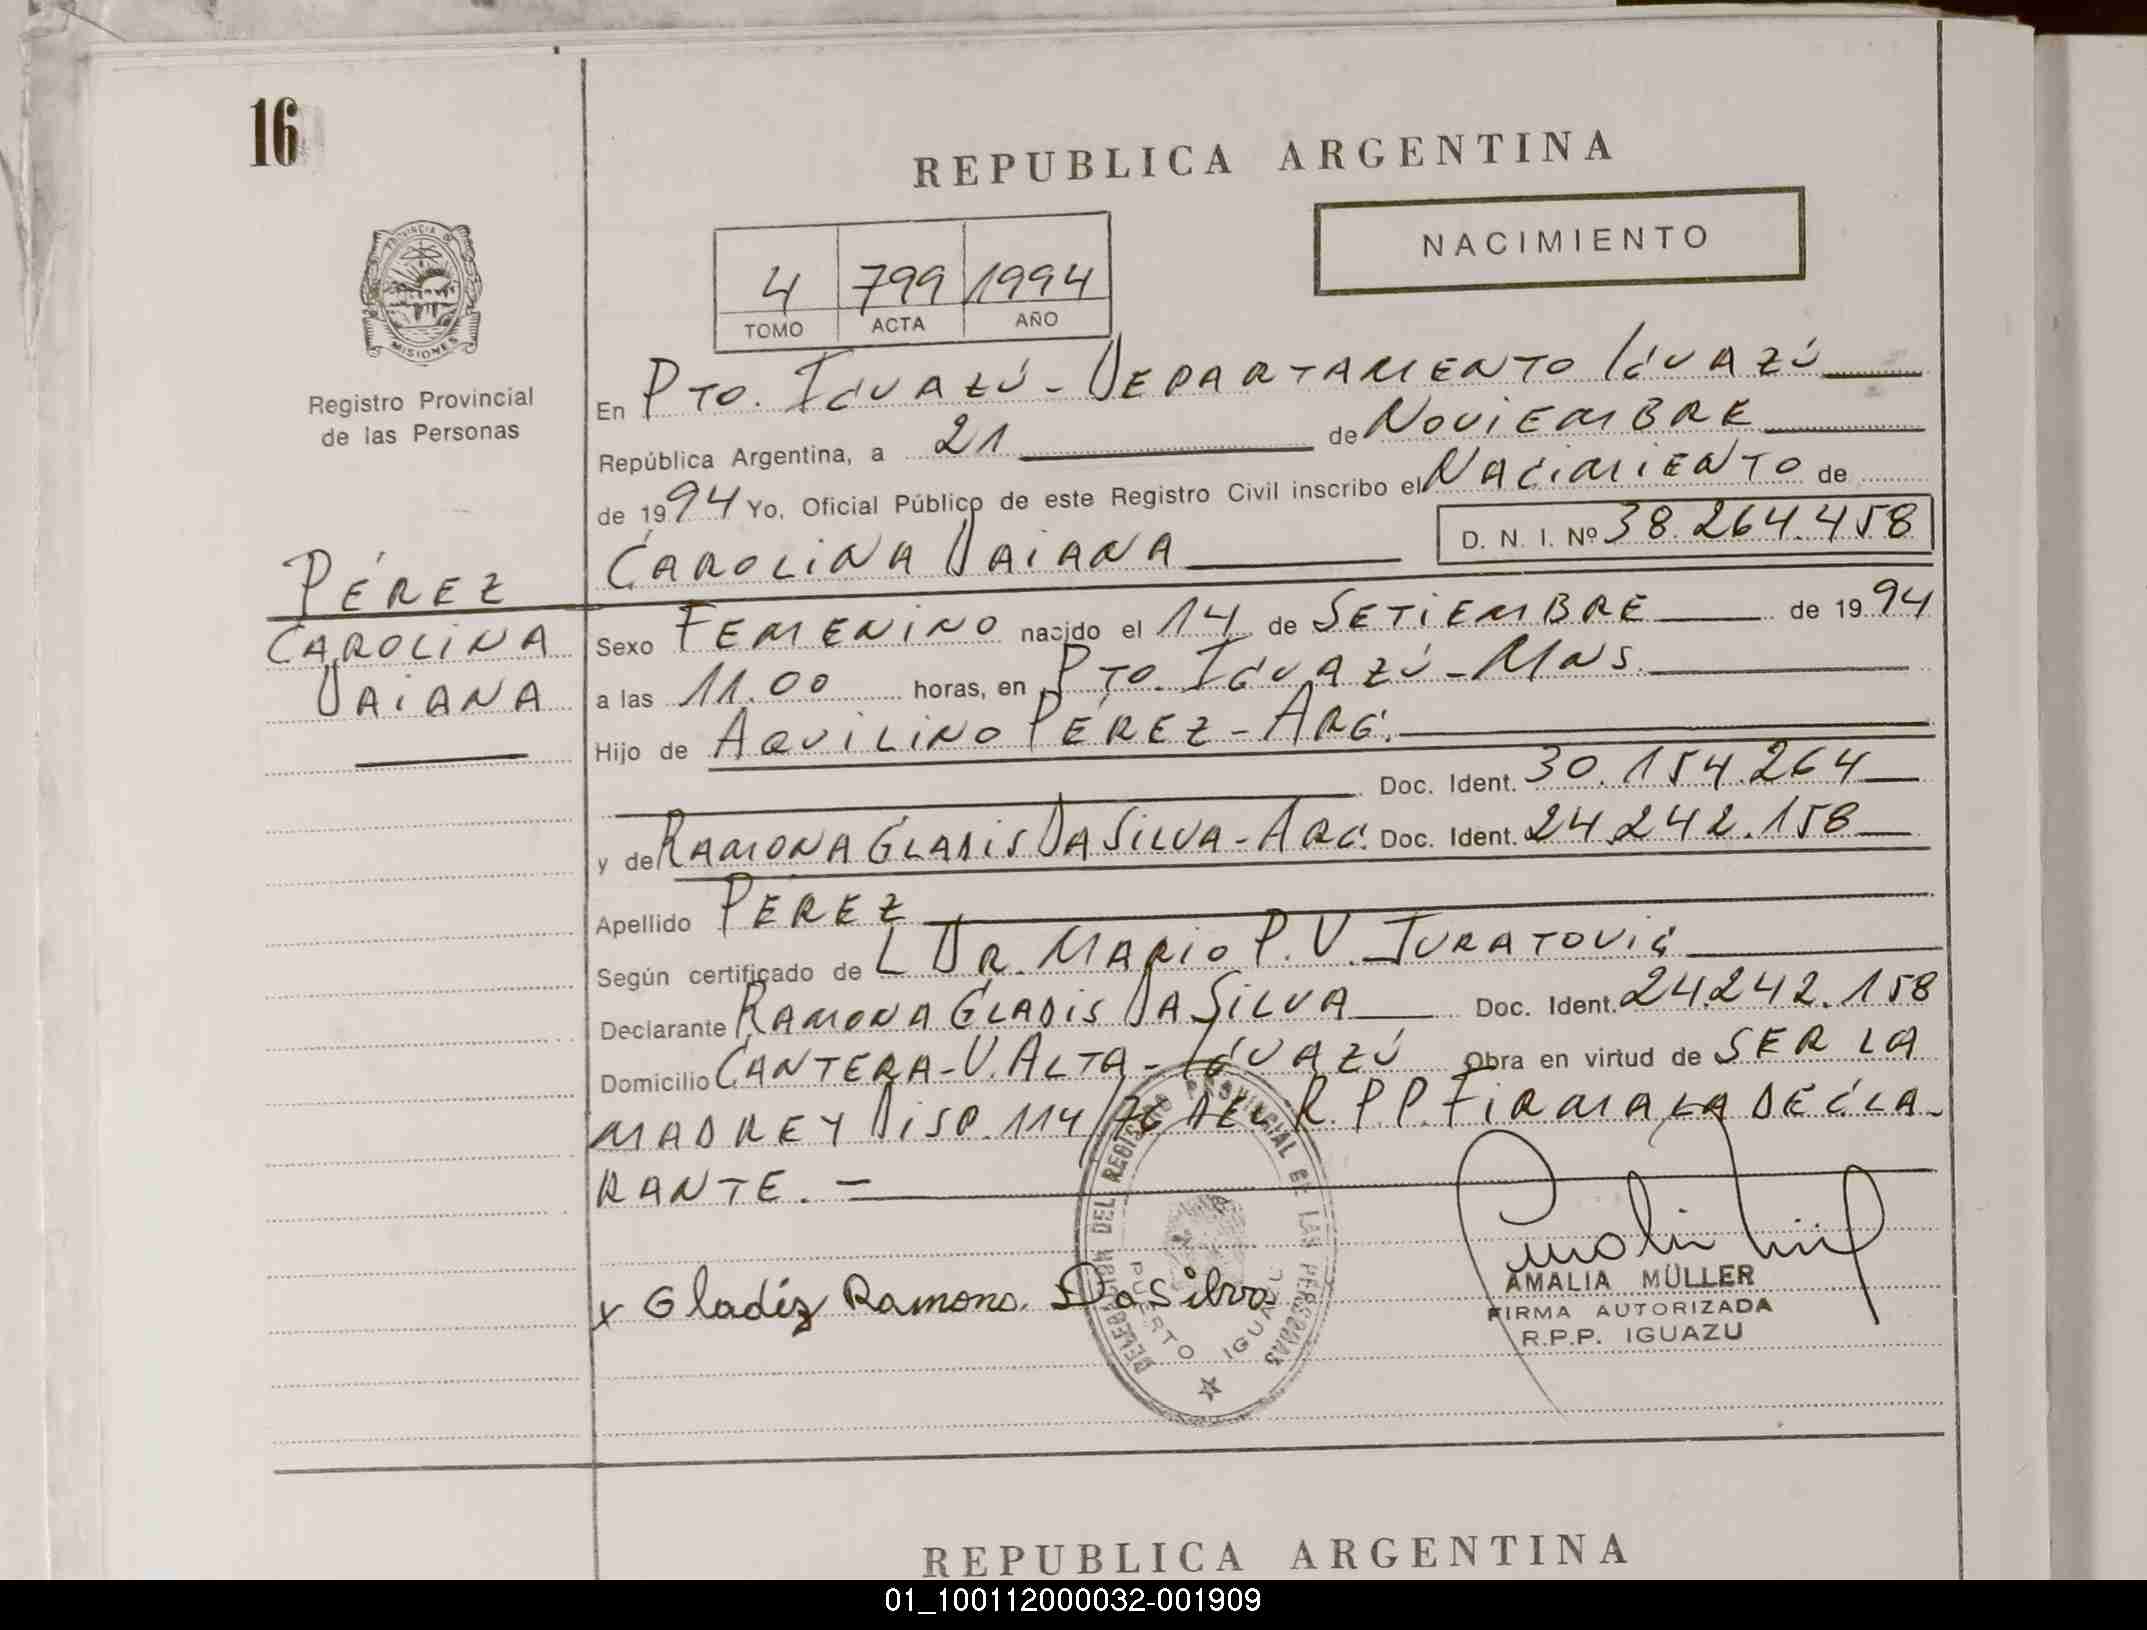 16
REPUBLICA ARGENTINA
NACIMIENTO
4 799 1994
TOMO ACTA AÑO
PROVINCIA DE
MISIONES
Registro Provincial
de las Personas
En PTO. IGUAZÚ - DEPARTAMENTO IGUAZÚ
República Argentina, a 21 de NOVIEMBRE
de 1994 Yo, Oficial Público de este Registro Civil inscribo el NACIMIENTO de
CAROLINA DAIANA D. N. I. Nº 38.264.458
PÉREZ
CAROLINA
DAIANA
Sexo FEMENINO nacido el 14 de SETIEMBRE de 1994
a las 11.00 horas, en PTO. IGUAZÚ - MNS.
Hijo de AQUILINO PÉREZ - ARG.
Doc. Ident. 30.154.264
y de RAMONA GLADIS DA SILVA - ARG. Doc. Ident. 24.242.158
Apellido PEREZ
Según certificado de L DR. MARIO P. V. JURATOVIC
Declarante RAMONA GLADIS DA SILVA Doc. Ident. 24.242.158
Domicilio CANTERA - V. ALTA - IGUAZÚ Obra en virtud de SER LA
MADRE Y DISP. 114/76 DEL R.P.P. FIRMA LA DECLA-
RANTE. -
x Gladiz Ramona Da Silva
AMALIA MÜLLER
FIRMA AUTORIZADA
R.P.P. IGUAZU
DELEGACION DEL REGISTRO PROVINCIAL DE LAS PERSONAS
PUERTO IGUAZU
REPUBLICA ARGENTINA
01_100112000032-001909